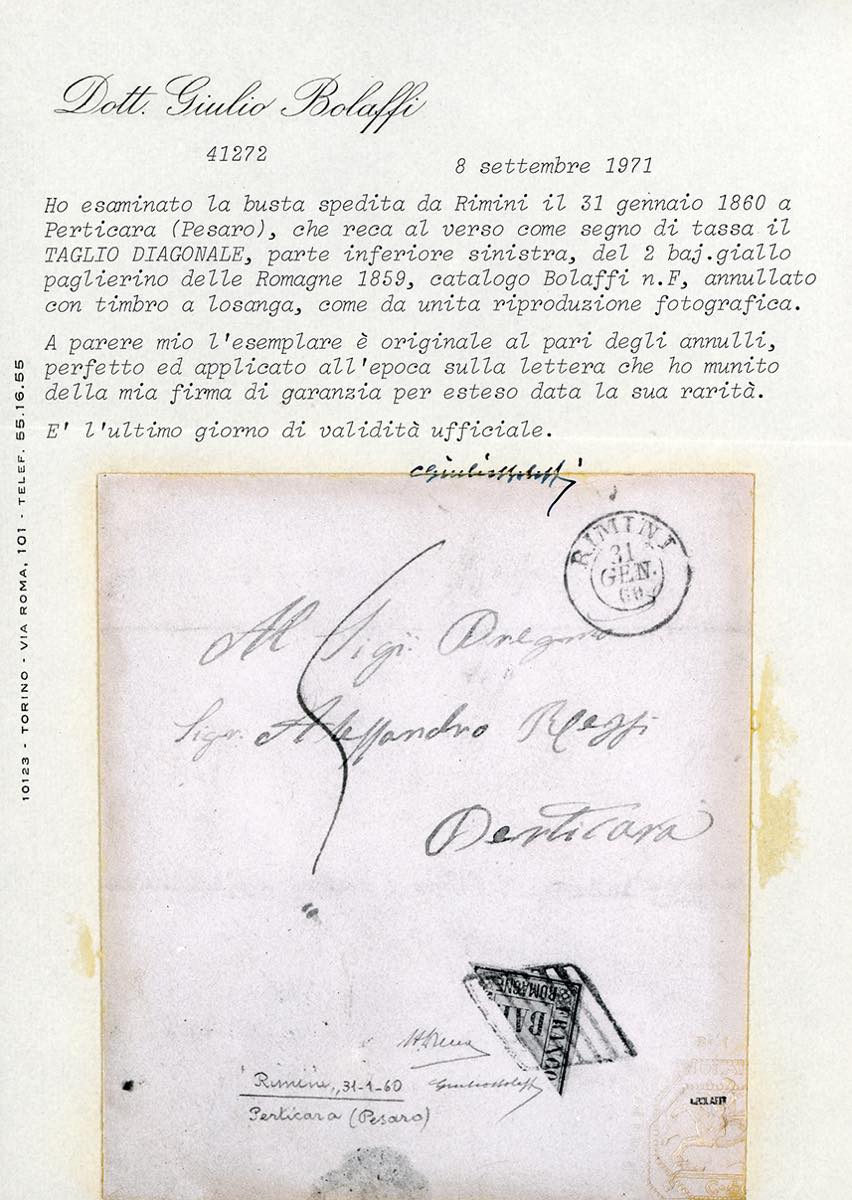 Dott. Giulio Bolaffi
41272
8 settembre 1971
Ho esaminato la busta spedita da Rimini il 31 gennaio 1860 a
Perticara (Pesaro), che reca al verso come segno di tassa il
TAGLIO DIAGONALE, parte inferiore sinistra, del 2 baj.giallo
paglierino delle Romagne 1859, catalogo Bolaffi n.F, annullato
con timbro a losanga, come da unita riproduzione fotografica.
A parere mio l'esemplare è originale al pari degli annulli,
perfetto ed applicato all'epoca sulla lettera che ho munito
della mia firma di garanzia per esteso data la sua rarità.
E' l'ultimo giorno di validità ufficiale.
10123 - TORINO - VIA ROMA, 101 - TELEF. 55.16.55
GiulioBolaffi
RIMINI
31
GEN.
60
Al Sigr
Sigr. Alessandro
Perticara
ROMAGNE
BAI
FRANCO
GiulioBolaffi
Rimini, 31-1-60
Perticara (Pesaro)
G.BOLAFFI